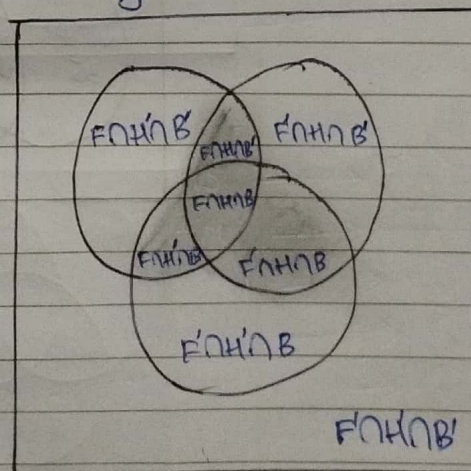 F∩H'∩B' F'∩H∩B'
F∩H∩B'
F∩H∩B
F∩H'∩B F'∩H∩B
F'∩H'∩B
F'∩H'∩B'